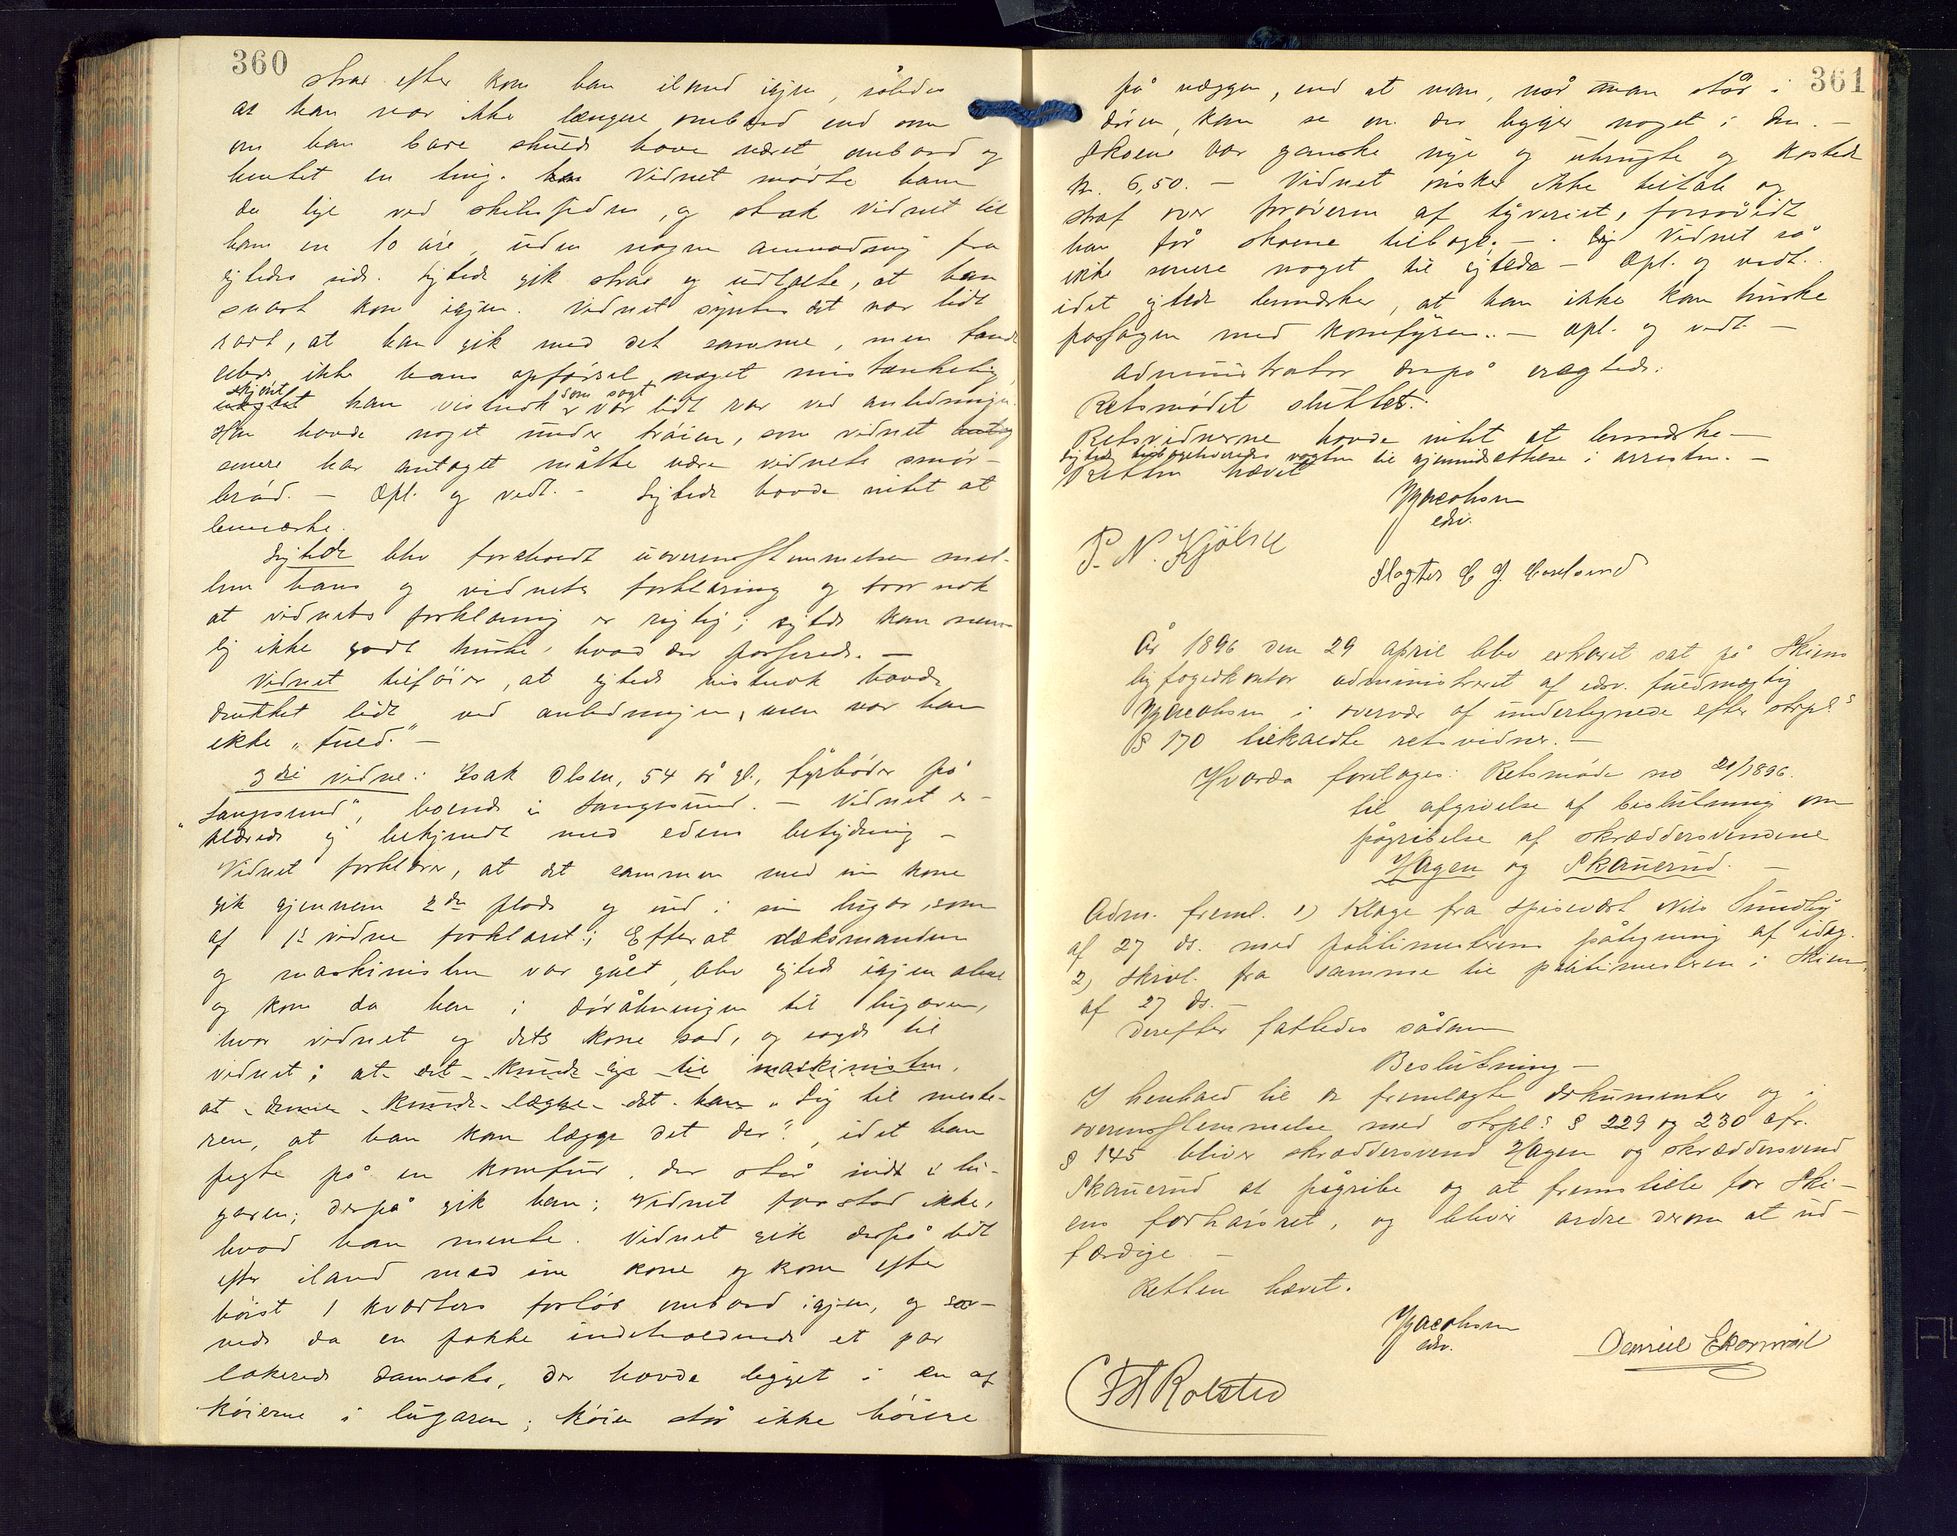 360
strax efter kom han iland igjen, således
at han var ikke længere ombord end om
om han bare skulde have været ombord og
hentet en ting. Vidnet mødte ham
da lige ved skibssiden, og stak vidnet til
ham en 10 øre, uden nogen anmodning fra
sigtedes side. Sigtede gik strax og udtalte, at han
snart kom igjen. Vidnet syntes det var lidt
rart, at han gik med det samme, men fandt
ellers ikke hans opførsel noget mistænkelig,
skjønt han vistnok som sagt var lidt rar ved anledningen.
Han havde noget under trøien, som vidnet antog
senere har antaget måtte være vidnets smør-
brød. — Opl. og vedt. — Sigtede havde intet at
bemærke.
Sigtede blev foreholdt uoverensstemmelsen mel-
lem hans og vidnets forklaring og tror nok
at vidnets forklaring er rigtig; sigtede kan nem-
lig ikke godt huske, hvad der passerede. —
Vidnet tilføier, at sigtede vistnok havde
drukket lidt ved anledningen, men var han
ikke "fuld." —
3die vidne: Isak Olsen, 54 år gl., fyrbøder på
"Langesund", boende i Langesund. — Vidnet er-
klærede sig bekjendt med edens betydning —
Vidnet forklarer, at det sammen med sin kone
gik gjennem 2den plads og ind i sin lugar, som
af 1ste vidne forklaret; Efterat dæksmanden
og maskinisten var gået, blev sigtede igjen alene
og kom da hen i døråbningen til lugaren,
hvor vidnet og dets kone sad, og sagde til
vidnet; at det kunde sige til maskinisten,
at denne kunde lægge det han "Sig til meste-
ren, at han kan lægge det der", idet han
pegte på en komfur, der står inde i lu-
garen; derpå gik han; Vidnet forstod ikke,
hvad han mente. Vidnet gik derpå lidt
efter iland med sin kone og kom efter
høist 1 kvarters forløb ombord igjen, og sav-
nede da en pakke indeholdende et par
lakerede damesko, der havde ligget i en af
køierne i lugaren; køien står ikke høiere
361
på væggen, end at man, når man står i
døren, kan se om der ligger noget i den. —
Skoene var ganske nye og ubrugte og kostede
kr. 6,50. — Vidnet ønsker ikke tiltale og
straf over prøveren af tyveriet, forsåvidt
han får skoene tilbage; — Vidnet så
ikke senere noget til sigtede — Opl. og vedt.
idet sigtede bemærker, at han ikke kan huske
passagen med komfyren. — Opl. og vedt. —
Administrator derpå eragtede:
Retsmødet sluttet.
Retsvidnerne havde intet at bemærke —
Sigtede tilbageleveredes vagten til gjenindsættelse i arresten. —
Retten hævet
Jacobsen
edsv.
P. N. Kjölset
Slagter C J Carlsend
År 1896 den 29 april blev ekstraret sat på Skiens
byfogedkontor administreret af edsv. fuldmægtig
Jacobsen i overvær af undertegnede efter strpl.s
§ 170 tilkaldte retsvidner. —
Hvorda foretages: Retsmøde no 21/1896.
til afgivelse af beslutning om
pågribelse af skræddersvendene
Hagen og Skauerud. —
Adm. freml. 1) Klage fra spisevært Nils Sundby
af 27 ds. med politimesterens påtegning af idag.
2) Skriv. fra samme til politimesteren i Skien,
af 27 ds. —
Derefter fattedes sådan
Beslutning —
I henhold til de fremlagte dokumenter og i
overensstemmelse med strpl.s § 229 og 230 cfr.
§ 145 bliver skræddersvend Hagen og skræddersvend
Skauerud at pågribe og at fremstille for Ski-
ens forhørsret, og bliver ordre derom at ud-
færdige. —
Retten hævet.
Jacobsen
edsv.
Daniel Ekornrød
F A Rolsted